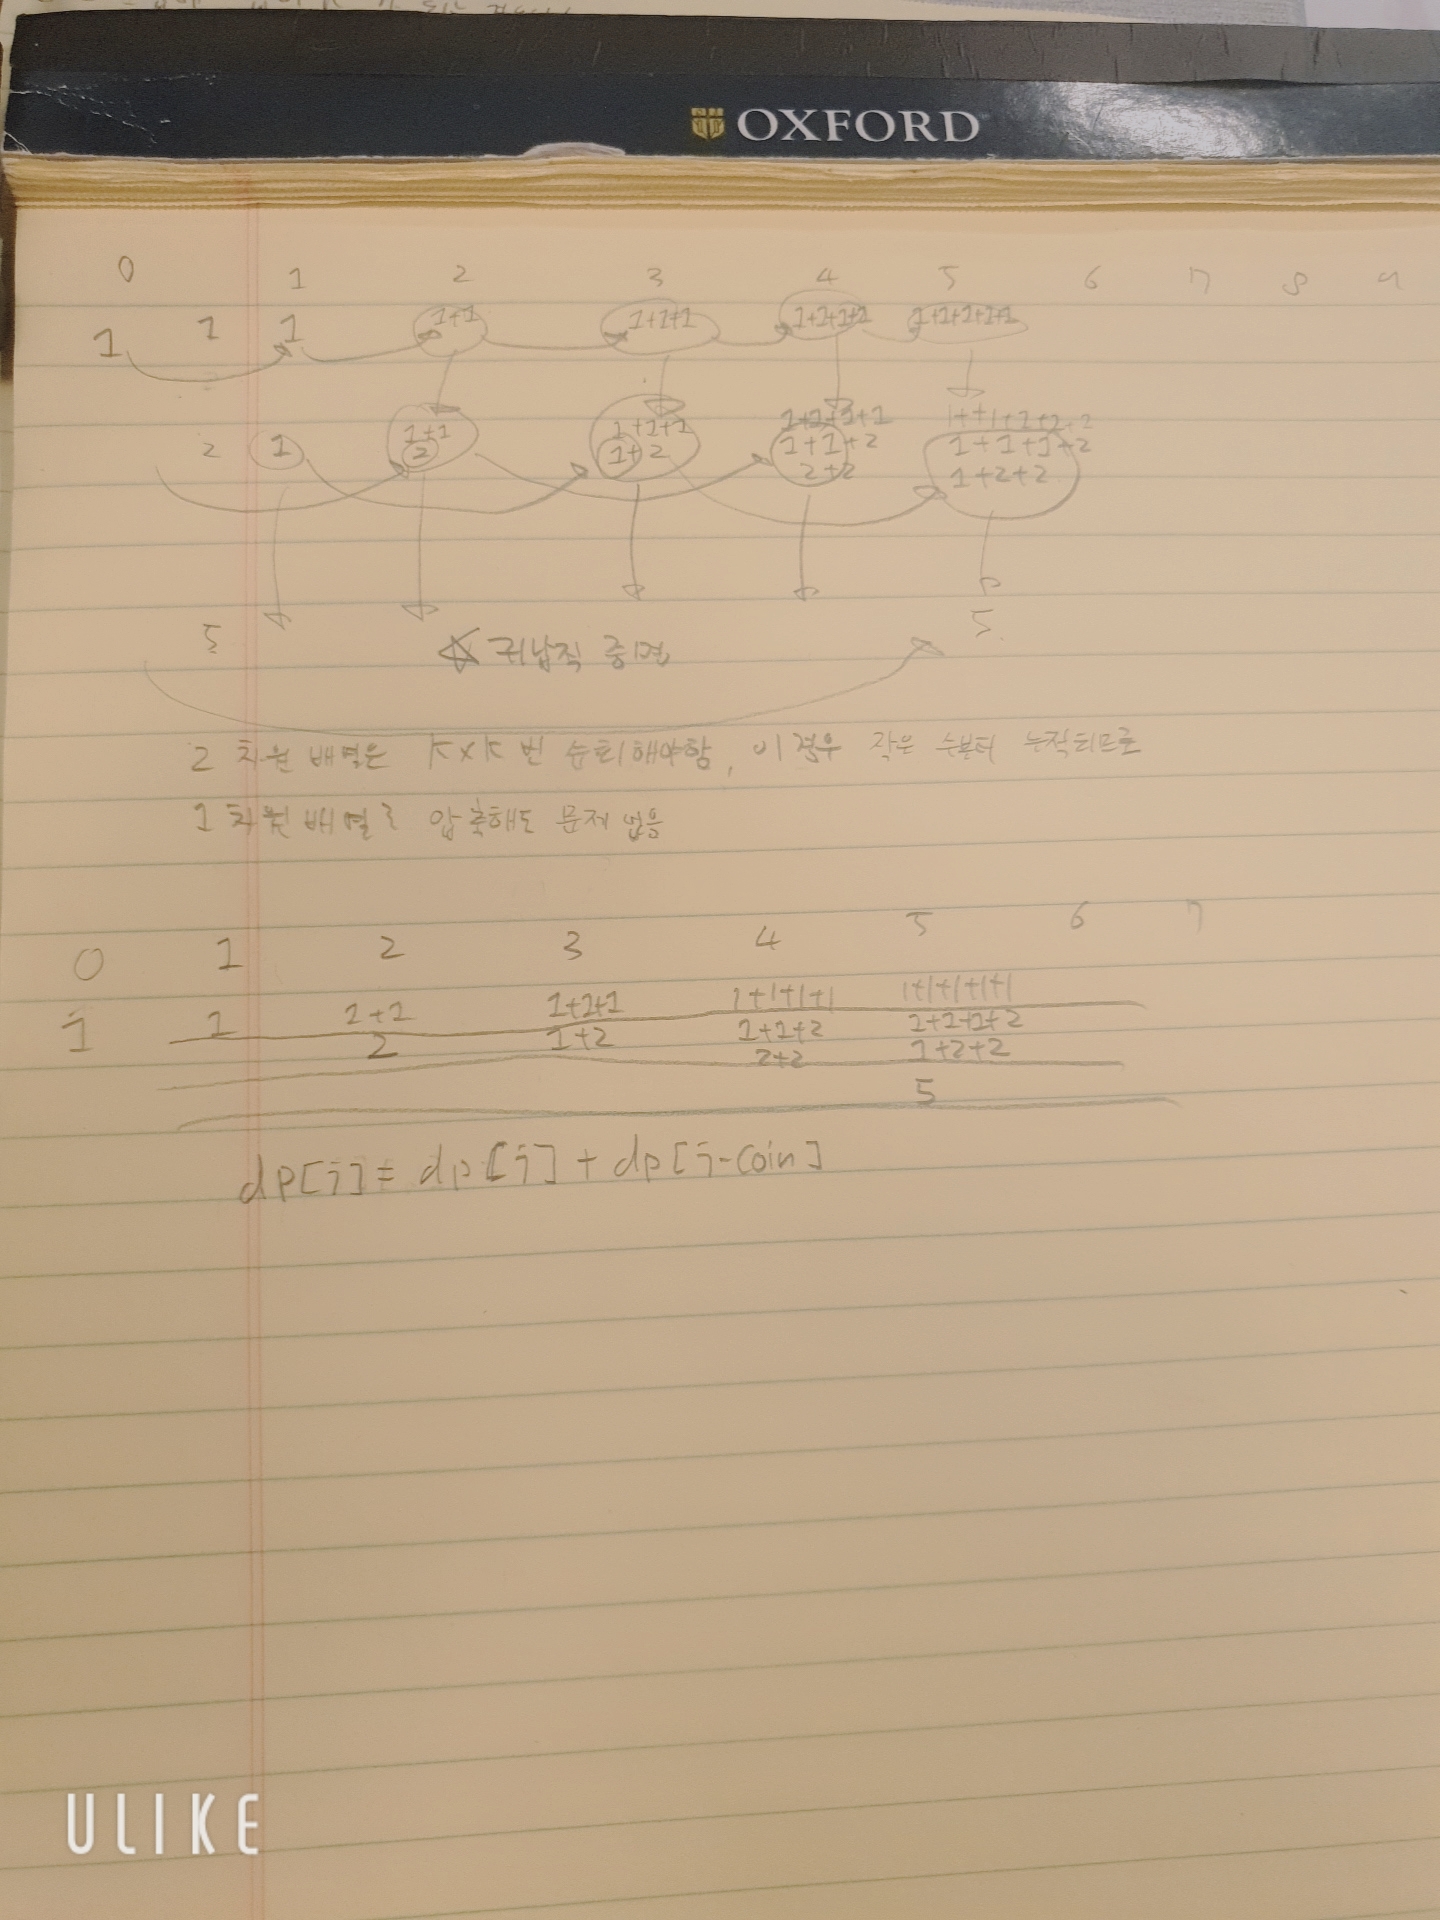 OXFORD
0 1 2 3 4 5 6 7 8 9
1 1 1 1+1 1+1+1 1+1+1+1 1+1+1+1+1
2 1 1+1 1+1+1 1+1+1+1
2 1+2 1+1+2 1+1+1+2
2+2 1+2+2
5 5
귀납적 증명
2차원 배열은 K×K번 순회해야함, 이 경우 작은 수부터 누적되므로
1차원 배열로 압축해도 문제 없음
0 1 2 3 4 5 6 7
1 1 1+1 1+1+1 1+1+1+1 1+1+1+1+1
2 1+2 1+1+2 1+1+1+2
2+2 1+2+2
5
dp[j] = dp[j] + dp[j-coin]
ULIKE